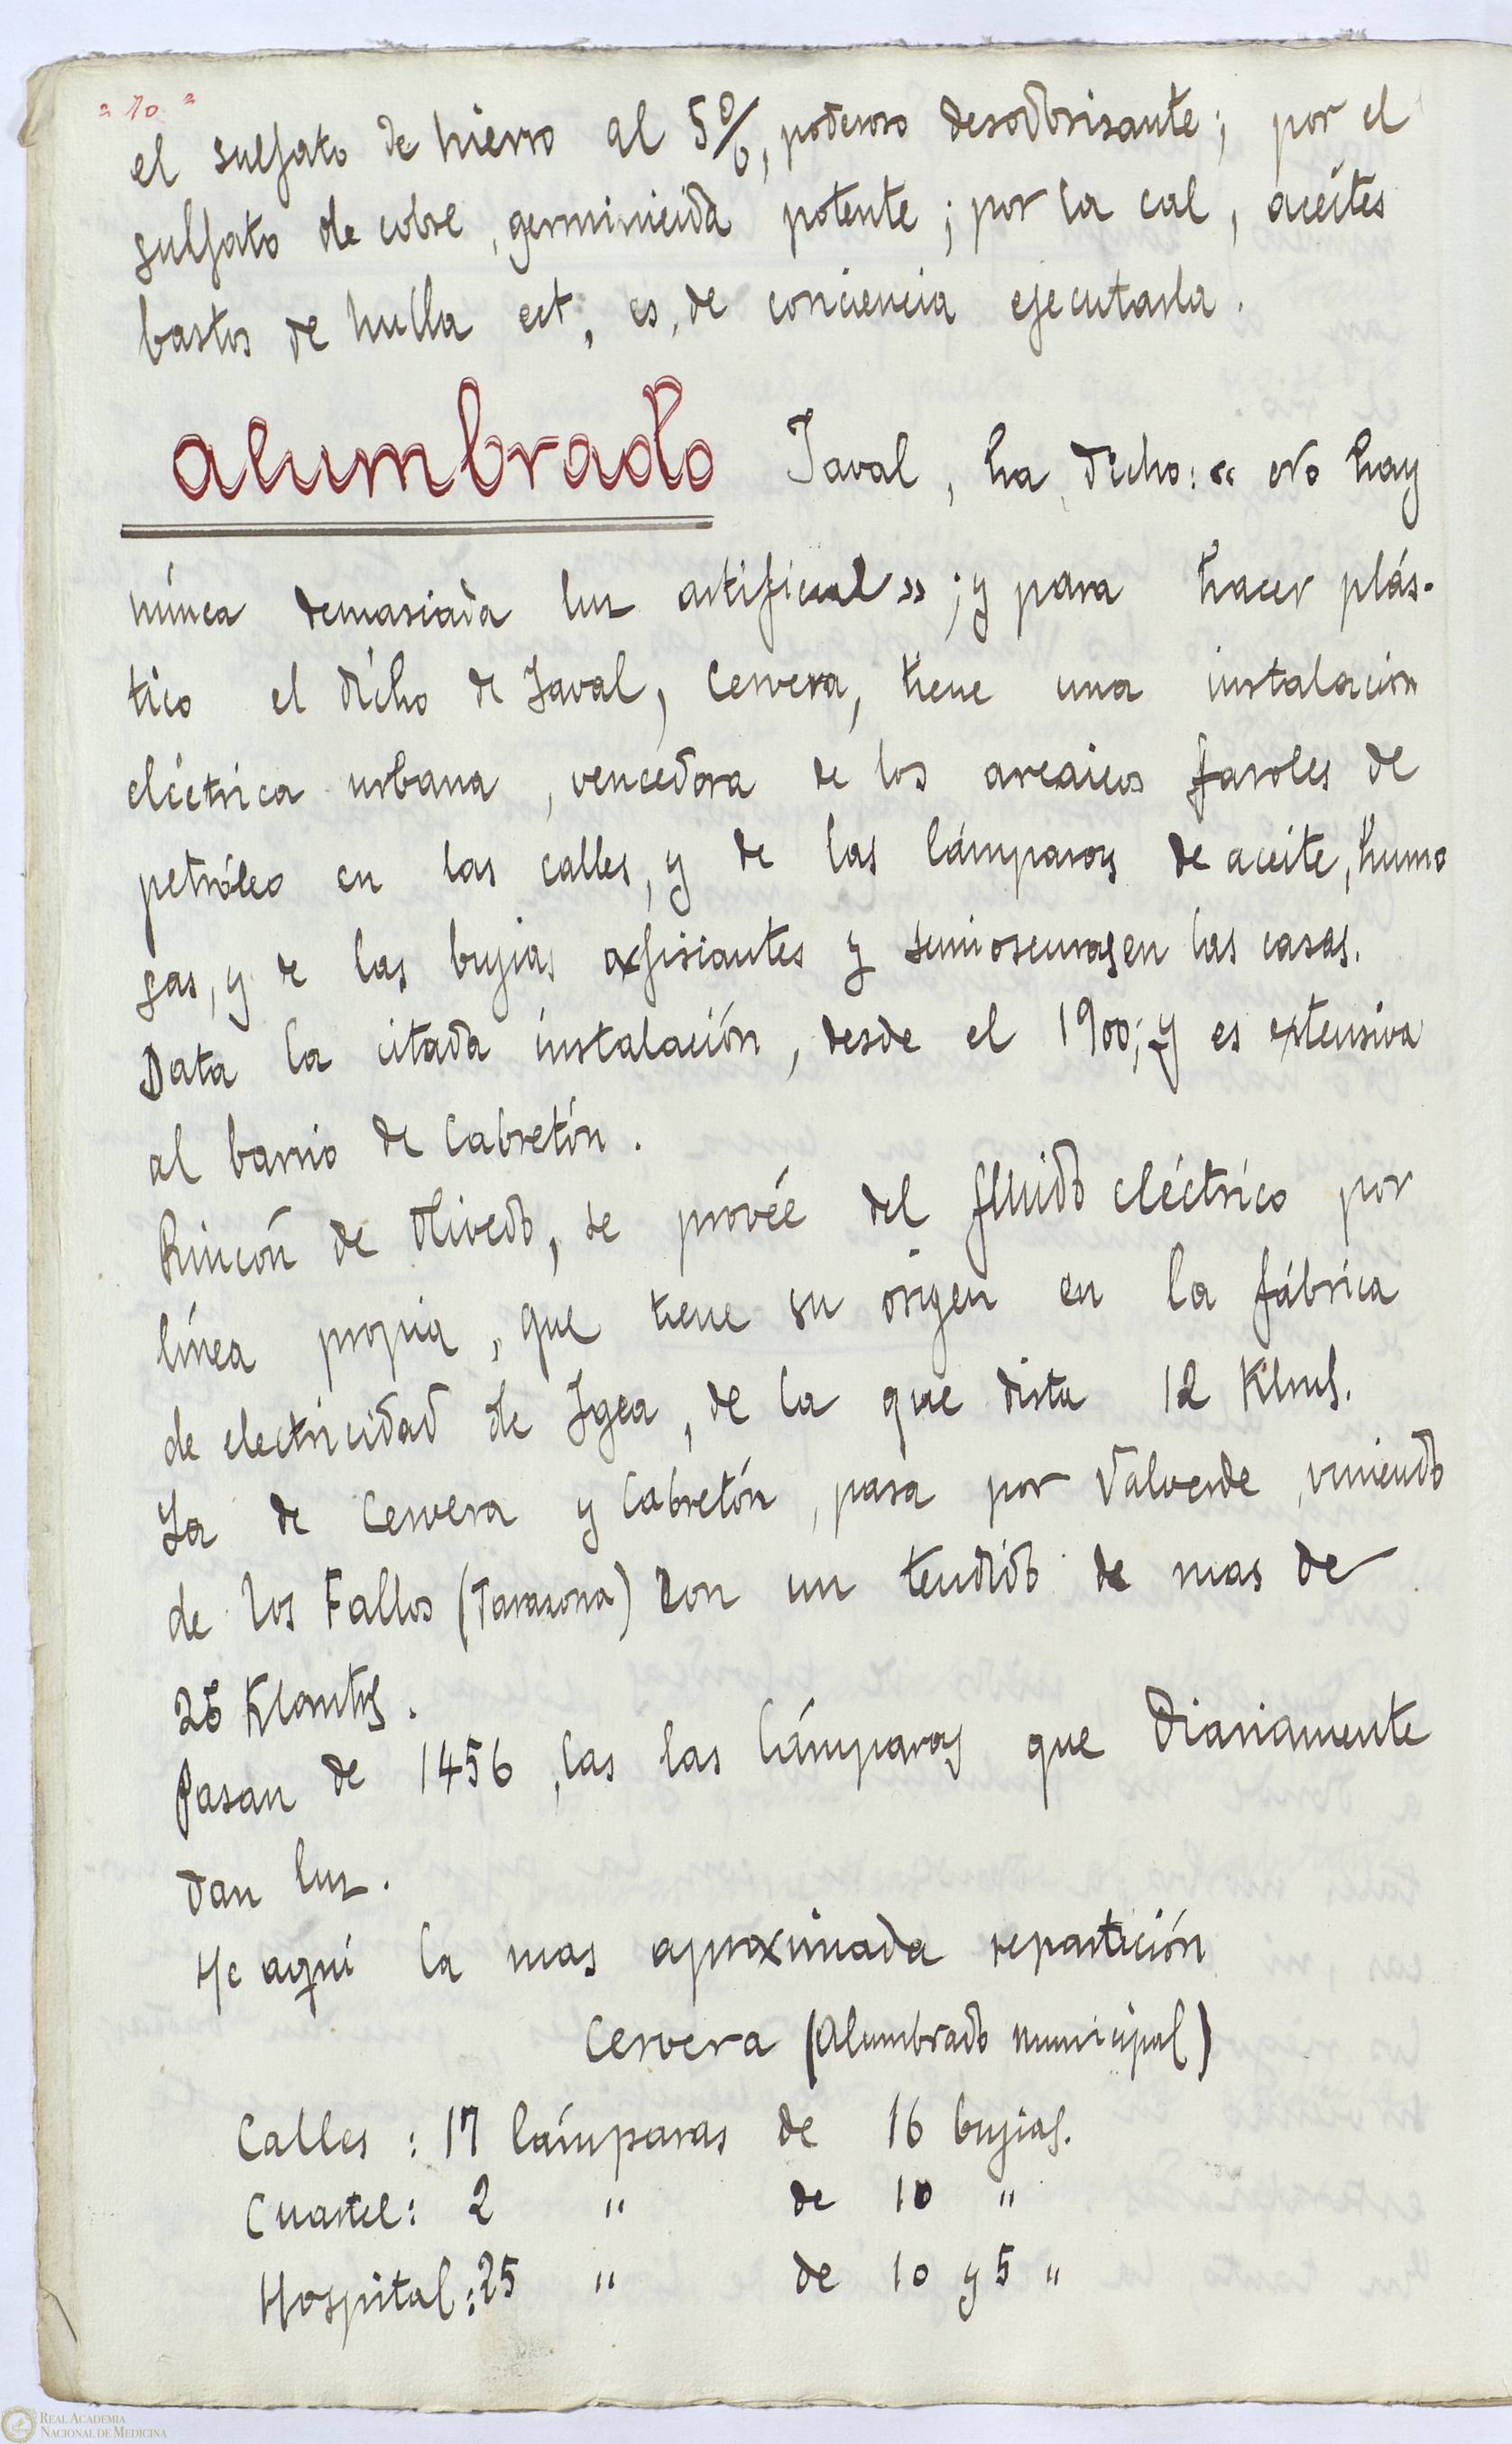 = 10 =
el sulfato de hierro al 5%, poderoso desodorisante; por el
sulfato de cobre, germinicida potente; por la cal, aceites
bastos de hulla ect, es, de conciencia ejecutarla.
alumbrado Javal, ha, dicho: « No hay
núnca demasiada luz artificial» ; y para hacer plás-
tico el dícho de Javal, Cervera, tiene una instalación
eléctrica urbana, vencedora de los arcaicos faroles de
petróleo en las calles, y de las lámparas de aceite, humo
gas, y de las bujias axfisiantes y semioscuras en las casas.
Data la citada instalación, desde el 1900; y es extensiva
al barrio de Cabretón.
Rincón de Olivedo, se provée del fluido eléctrico por
línea propia, que tiene su origen en la fábrica
de electricidad de Igea, de la que dista 12 Klms.
La de Cervera y Cabretón, pasa por Valverde, viniendo
de los Fallos (Tarazona) con un tendido de mas de
26 Klomtrs.
Pasan de 1456, las las lámparas que diariamente
dan luz.
He aquí la mas aproximada repartición
Cervera (Alumbrado municipal)
Calles : 17 lámparas de 16 bujias.
Cuartel : 2 " de 10 "
Hospital : 25 " de 10 y 5 "
REAL ACADEMIA
NACIONAL DE MEDICINA